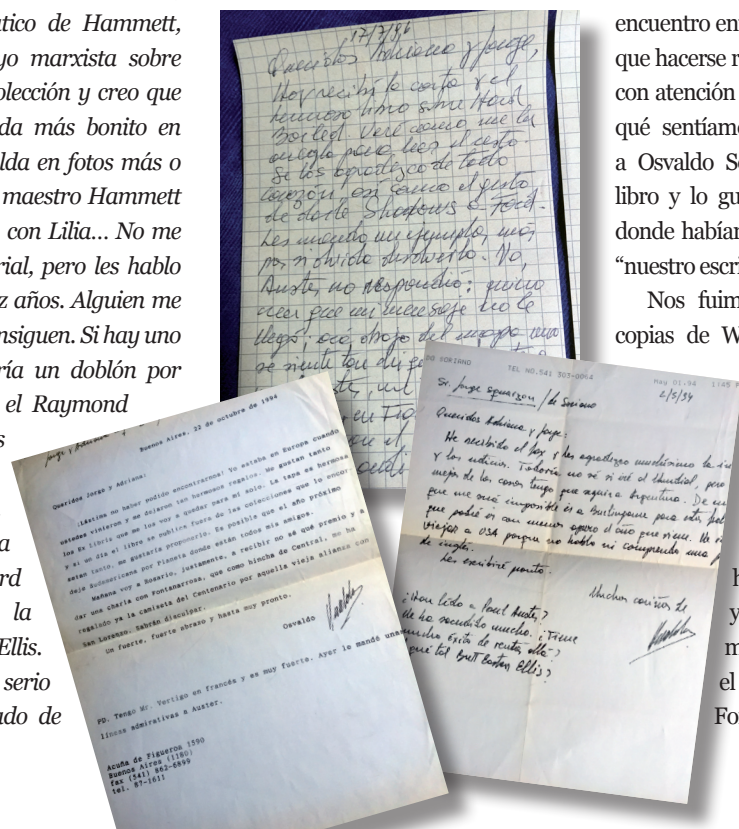 ático de Hammett,
yo marxista sobre
olección y creo que
da más bonito en
alda en fotos más o
maestro Hammett
con Lilia... No me
rial, pero les hablo
z años. Alguien me
nsiguen. Si hay uno
ría un doblón por
el Raymond
s
a
rd
la
Ellis.
serio
ado de
17/7/96
Queridos Adriana y Jorge,
Hoy recibí la carta y el
hermoso libro sobre Hard
Boiled. Veré como me las
arreglo para leer el resto.
Se los agradezco de todo
corazón así como el gesto
de darle Shadows a Ford.
Les mando un ejemplar más
por si olvida devolverlo. No,
Auster no respondió; quiero
creer que mi mensaje no le
llegó, acá abajo del mapa uno
se siente tan
en
el
Buenos Aires, 22 de octubre de 1994
Queridos Jorge y Adriana:
¡Lástima no haber podido encontrarnos! Yo estaba en Europa cuando
ustedes vinieron y me dejaron tan hermosos regalos. Me gustan tanto
los Ex libris que me los voy a quedar para mí solo. La tapa es hermosa
y si un día el libro se publica fuera de las colecciones que lo encor-
setan tanto, me gustaría proponerlo. Es posible que el año próximo
deje Sudamericana por Planeta donde están todos mis amigos.
Mañana voy a Rosario, justamente, a recibir no sé qué premio y a
dar una charla con Fontanarrosa, que como hincha de Central, me ha
regalado ya la camiseta del Centenario por aquella vieja alianza con
San Lorenzo, sabrán disculpar.
Un fuerte, fuerte abrazo y hasta muy pronto.
Osvaldo
PD. Tengo Mr. Vertigo en francés y es muy fuerte. Ayer le mandé unas
líneas admirativas a Auster.
Acuña de Figueroa 1590
Buenos Aires (1180)
fax (541) 862-6899
tel. 87-1611
DO SORIANO TEL NO.541 303-0064 May 01.94 1:45 P
2/5/94
Sr. Jorge Eguiazon / de Soriano
Queridos Adriana y Jorge:
He recibido el fax y les agradezco muchísimo la
y las noticias. Todavía no sé si iré al Mundial, pero
mejor de los casos tengo que seguir a Argentina. De
que me será imposible ir a Burlingame para esta
que podré ir con menos apuro el año que viene.
viajar a USA porque no hablo ni comprendo una
de inglés.
Les escribiré pronto.
Muchos cariños de
¿Han leído a Paul Auster?
Me ha sacudido mucho. ¿Tiene
mucho éxito de ventas allá?
¿qué tal Brett Easton Ellis?
encuentro en
que hacerse r
con atención
qué sentíam
a Osvaldo S
libro y lo gu
donde habían
“nuestro escri
Nos fuim
copias de W
h
y
m
el
For